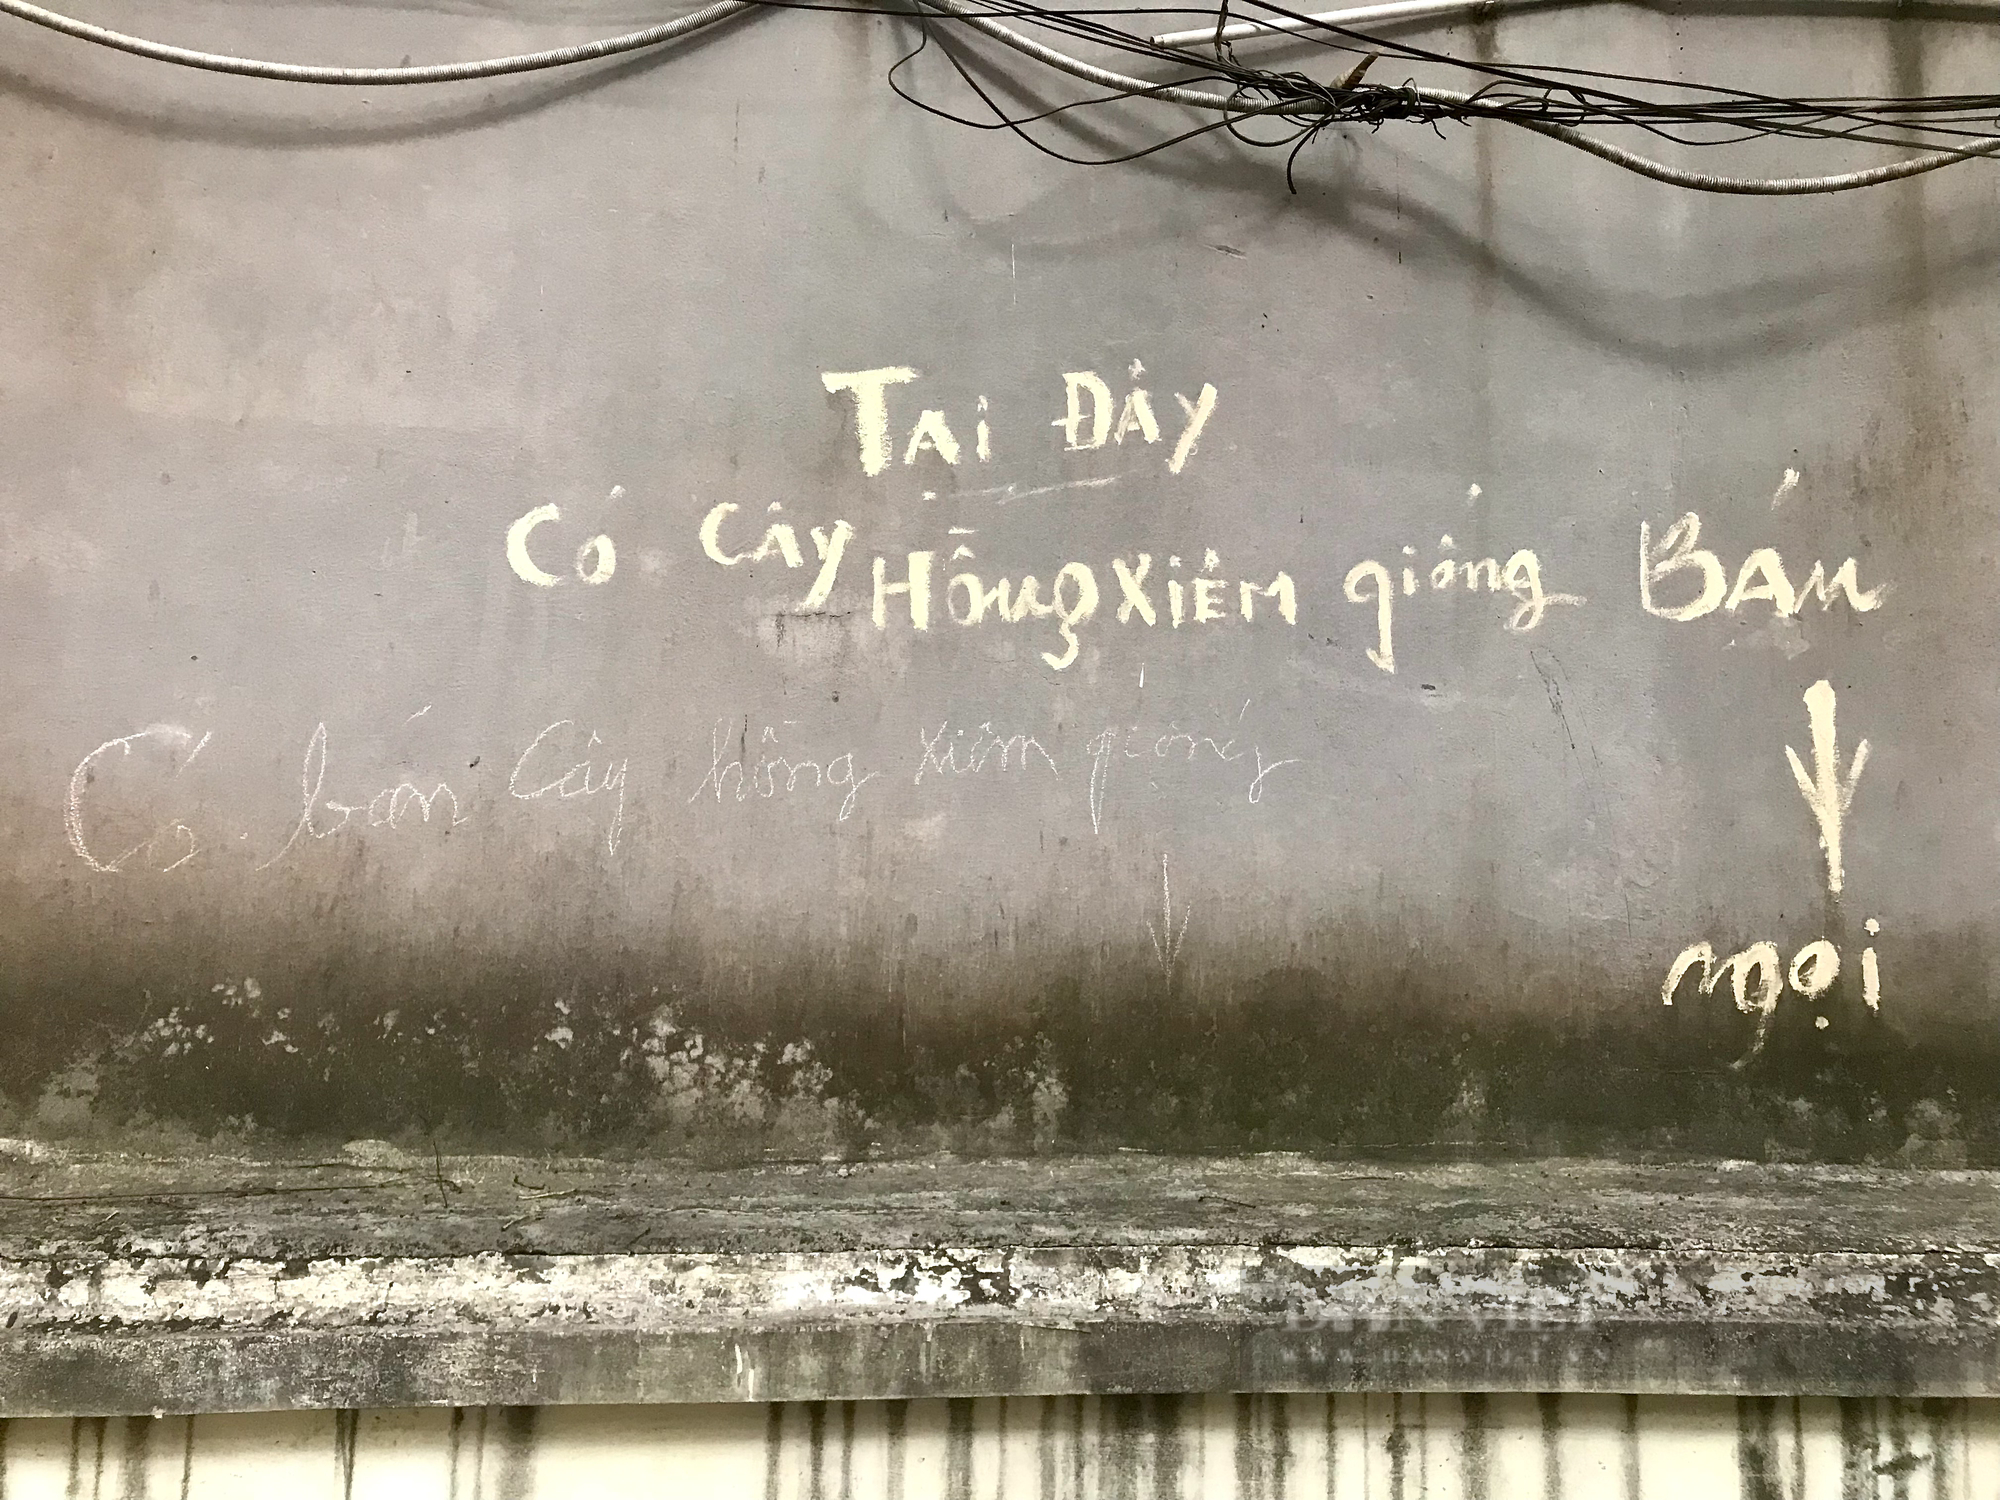 Tại Đây
Có Cây Hồng Xiêm giống Bán
Có bán Cây hồng xiêm giống
ngọi